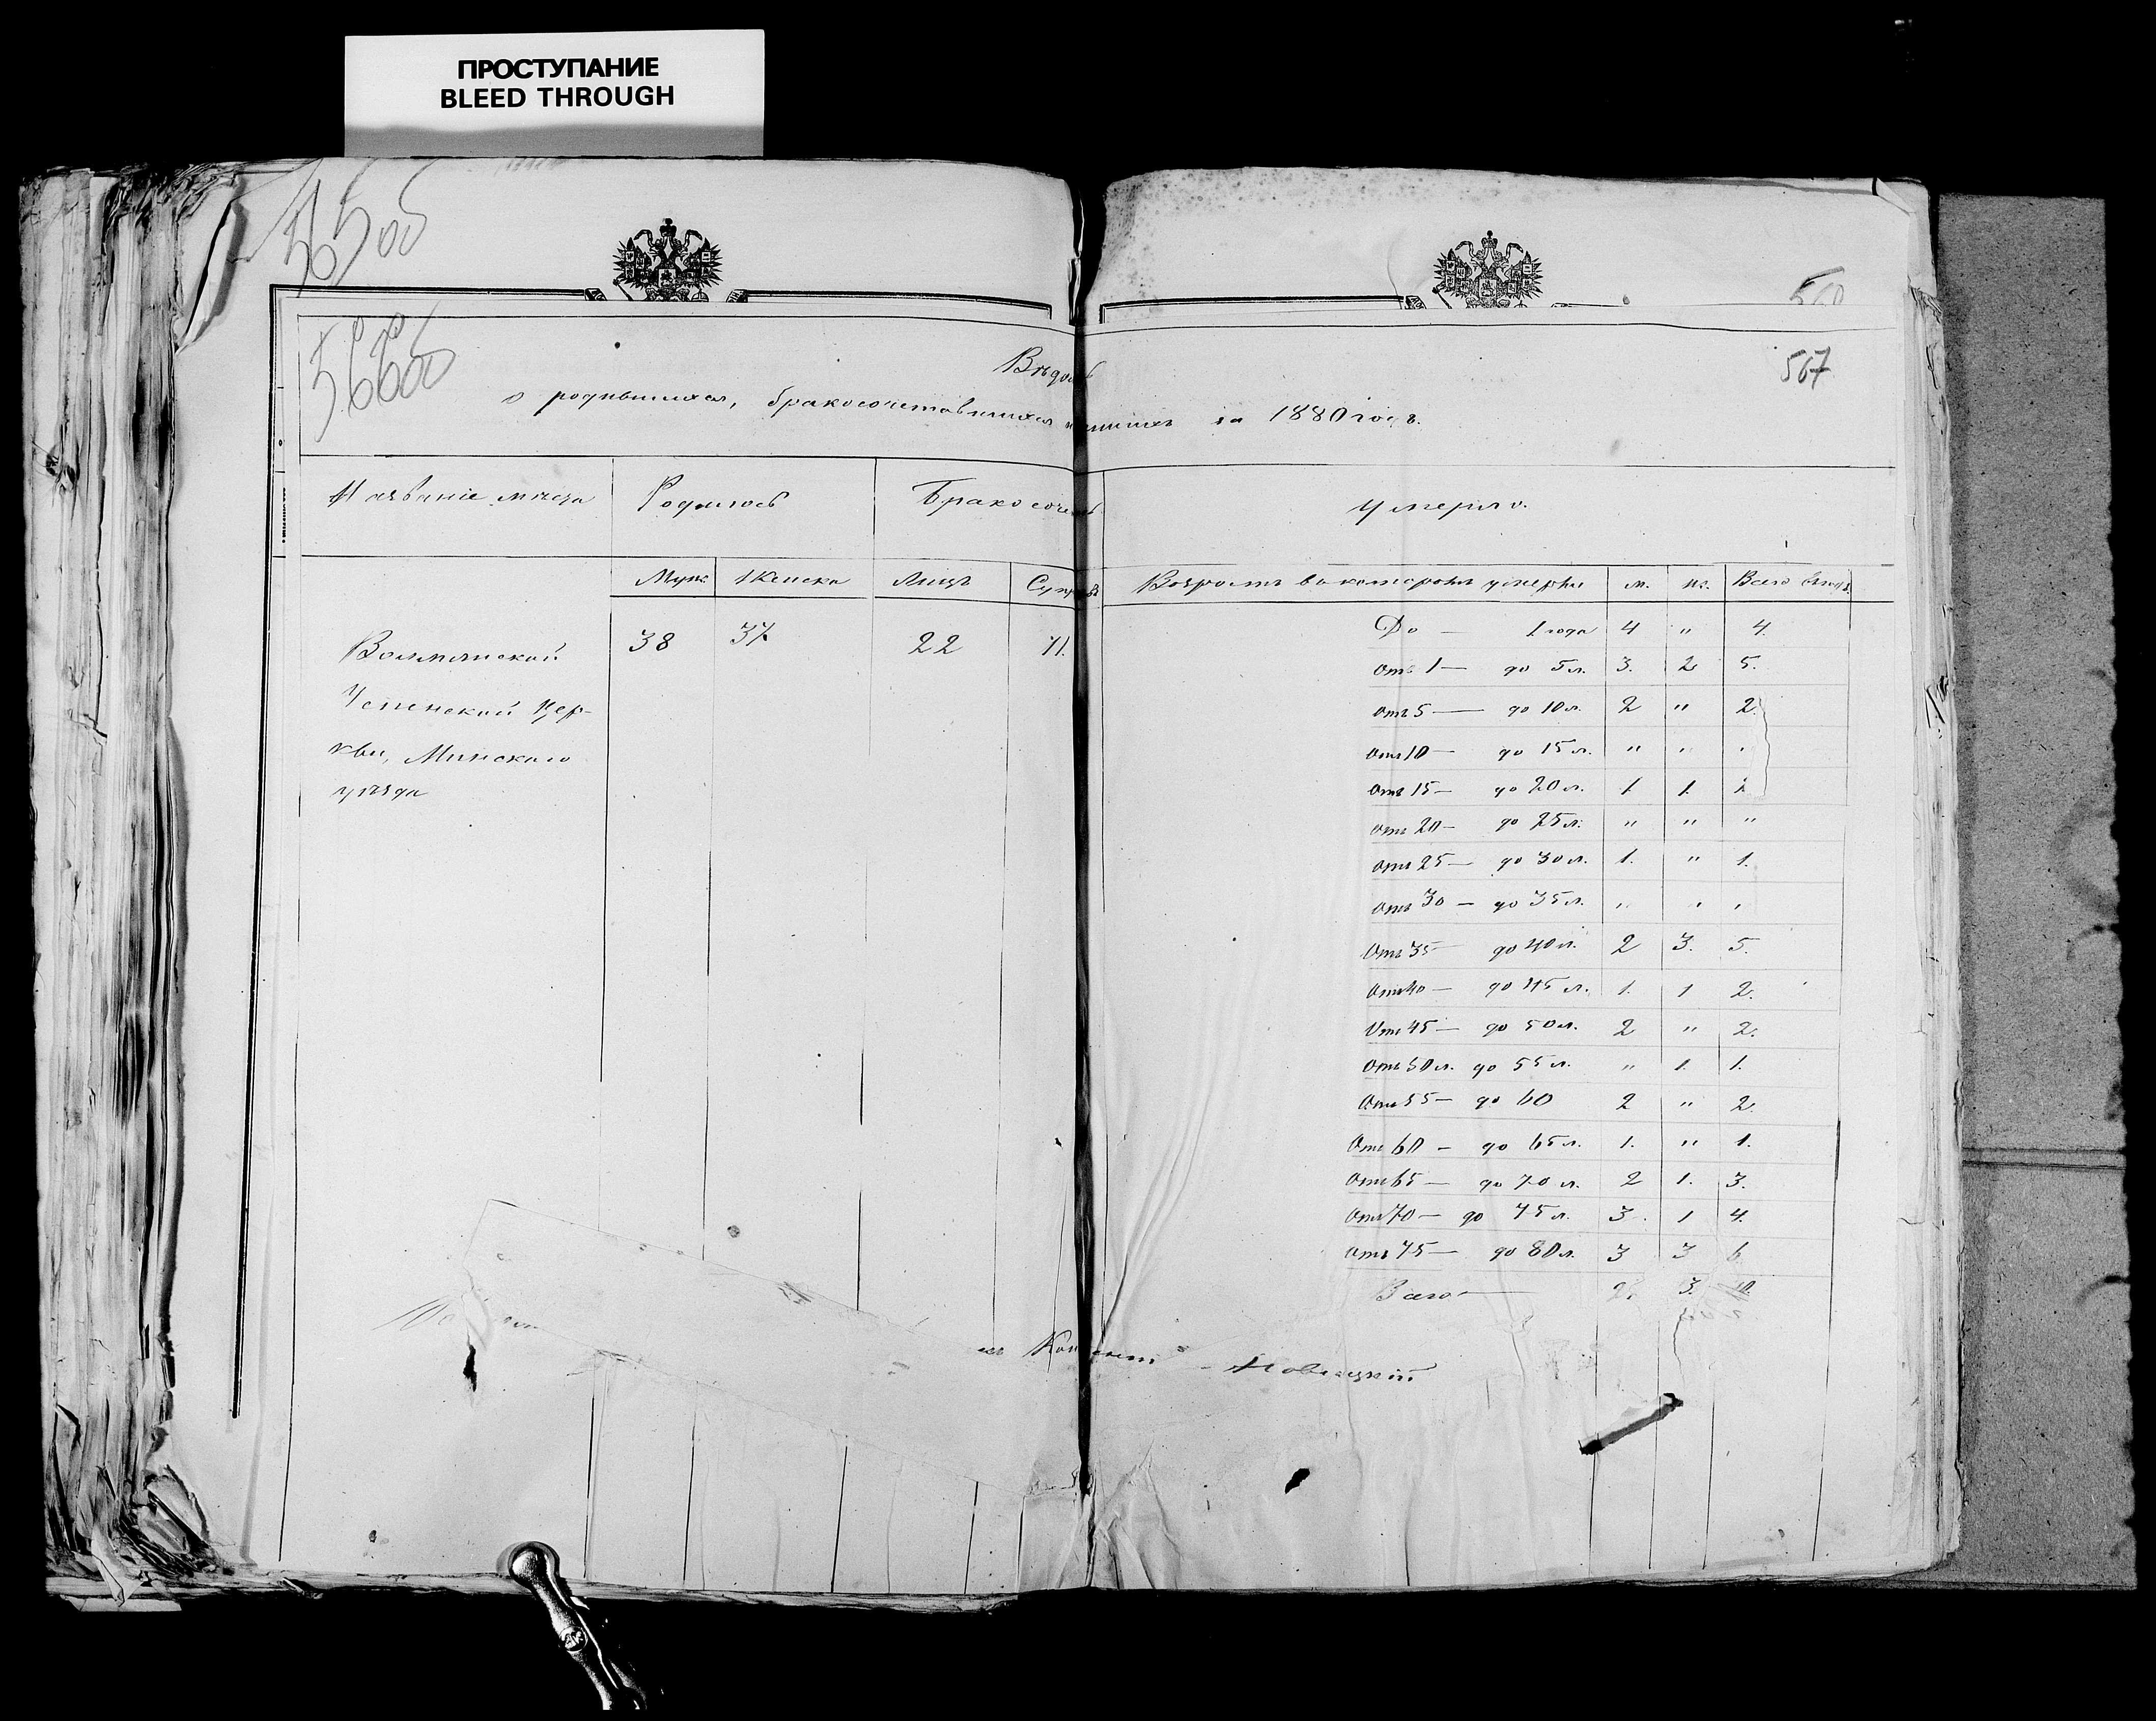 ПРОСТУПАНИЕ
BLEED THROUGH
567
о родившихся, бракосочетавшихся за 1880 годъ.
Названіе мѣста Родилось Умерло.
Муж. Женска Лицъ Возрастъ въ которомъ умерли м. ж. Всего
Волмянской 38 37 22 11.
Успенской Цер-
кви, Минскаго
уѣзда
До — 1 года 4 " 4.
Отъ 1 — до 5 л. 3. 2 5.
Отъ 5 — до 10 л. 2 " 2.
Отъ 10 — до 15 л. " " "
Отъ 15 — до 20 л. 1 1. 2
Отъ 20 — до 25 л. " " "
Отъ 25 — до 30 л. 1. " 1.
Отъ 30 — до 35 л. " " "
Отъ 35 — до 40 л. 2 3. 5.
Отъ 40 — до 45 л. 1. 1 2.
Отъ 45 — до 50 л. 2 " 2.
Отъ 50 л. до 55 л. " 1. 1.
Отъ 55 — до 60 2 " 2.
Отъ 60 — до 65 л. 1. " 1.
Отъ 65 — до 70 л. 2 1. 3.
Отъ 70 — до 75 л. 3. 1 4.
Отъ 75 — до 80 л. 3 3 6.
Всего —
Новицкій